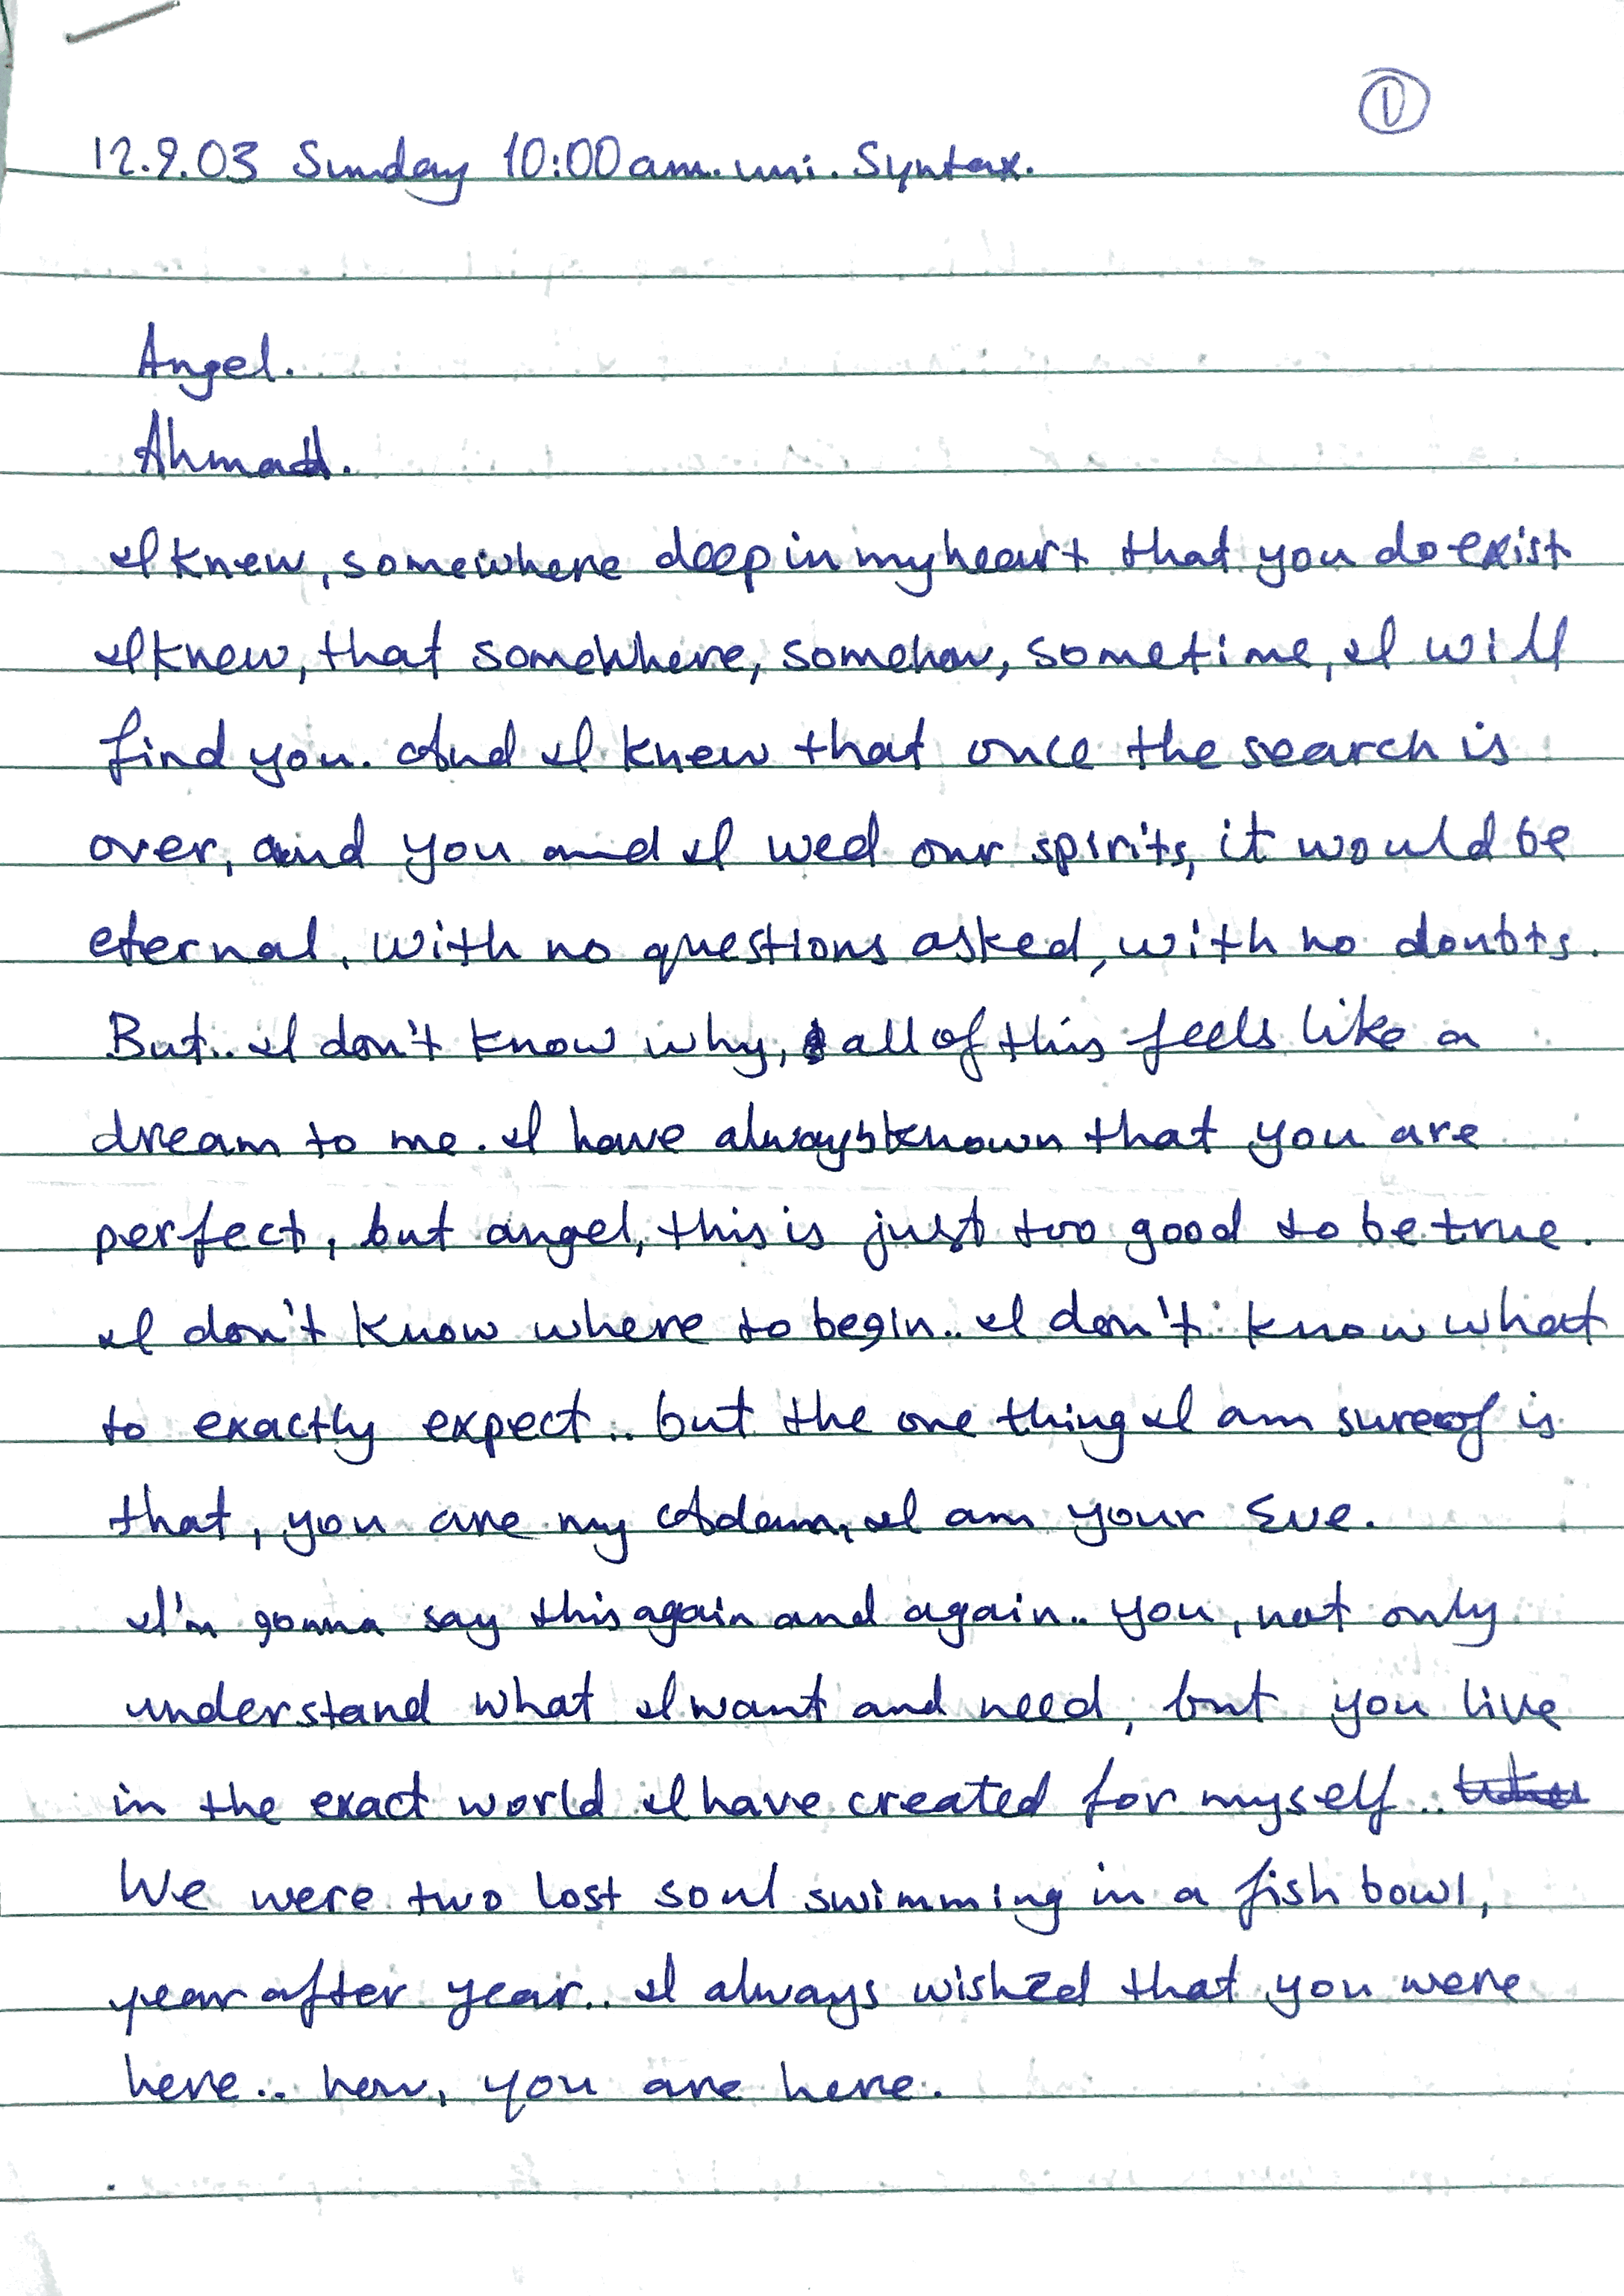 ①
12.9.03 Sunday 10:00am. uni. Syntax.
Angel.
Ahmad.
I knew, somewhere deep in my heart that you do exist
I knew, that somewhere, somehow, sometime, I will
find you. And I knew that once the search is
over, and you and I wed our spirits, it would be
eternal, with no questions asked, with no doubts.
But.. I don't know why, all of this feels like a
dream to me. I have always known that you are
perfect, but angel, this is just too good to be true.
I don't know where to begin.. I don't know what
to exactly expect.. but the one thing I am sure of is
that, you are my Adam, I am your Eve.
I'm gonna say this again and again.. you, not only
understand what I want and need, but you live
in the exact world I have created for myself..
We were two lost soul swimming in a fish bowl,
year after year.. I always wished that you were
here.. now, you are here.